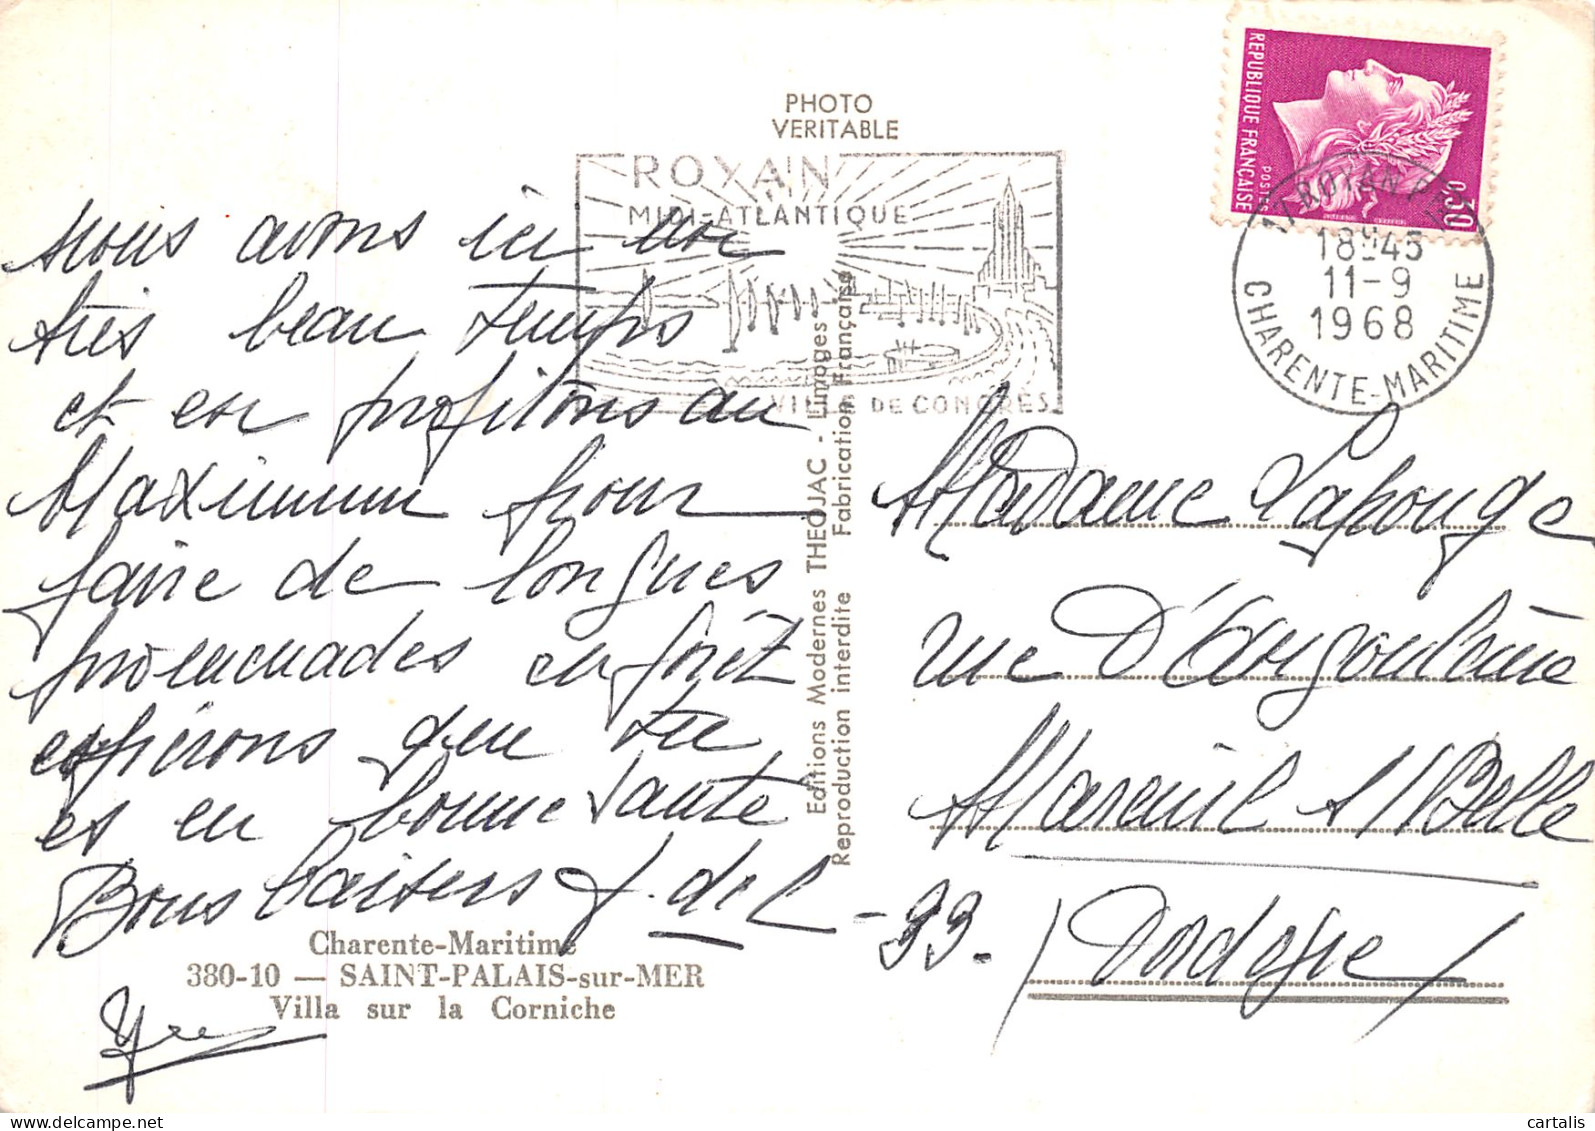 PHOTO
VERITABLE
ROYAN
MIDI-ATLANTIQUE
VILLE DE CONGRÈS
REPUBLIQUE FRANÇAISE
POSTES
0,30
17 ROYAN
18H45
11-9
1968
CHARENTE-MARITIME
nous avons ici un
très beau temps
et en profitons au
Maximum pour
faire de longues
promenades en forêt
espérons que tu
es en bonne santé
Bons baisers
Yves
Editions Modernes THEOJAC - Limoges
Reproduction interdite Fabrication Française
Madame Lapouge
rue D'Angoulême
Mareuil s/Belle
Dordogne
Charente-Maritime
380-10 — SAINT-PALAIS-sur-MER
Villa sur la Corniche
cartalis
delcampe.net